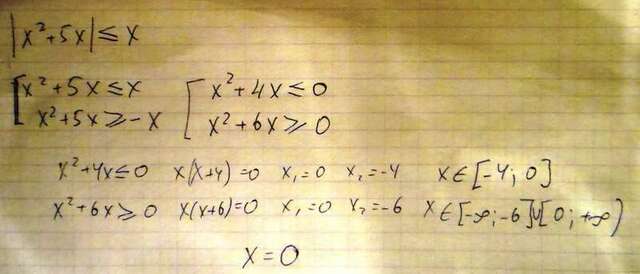 |x²+5x|≤x
[x²+5x≤x [x²+4x≤0
x²+5x≥-x x²+6x≥0
x²+4x≤0 x(x+4)=0 x₁=0 x₂=-4 x∈[-4;0]
x²+6x≥0 x(x+6)=0 x₁=0 x₂=-6 x∈[-∞;-6]∪[0;+∞)
x=0